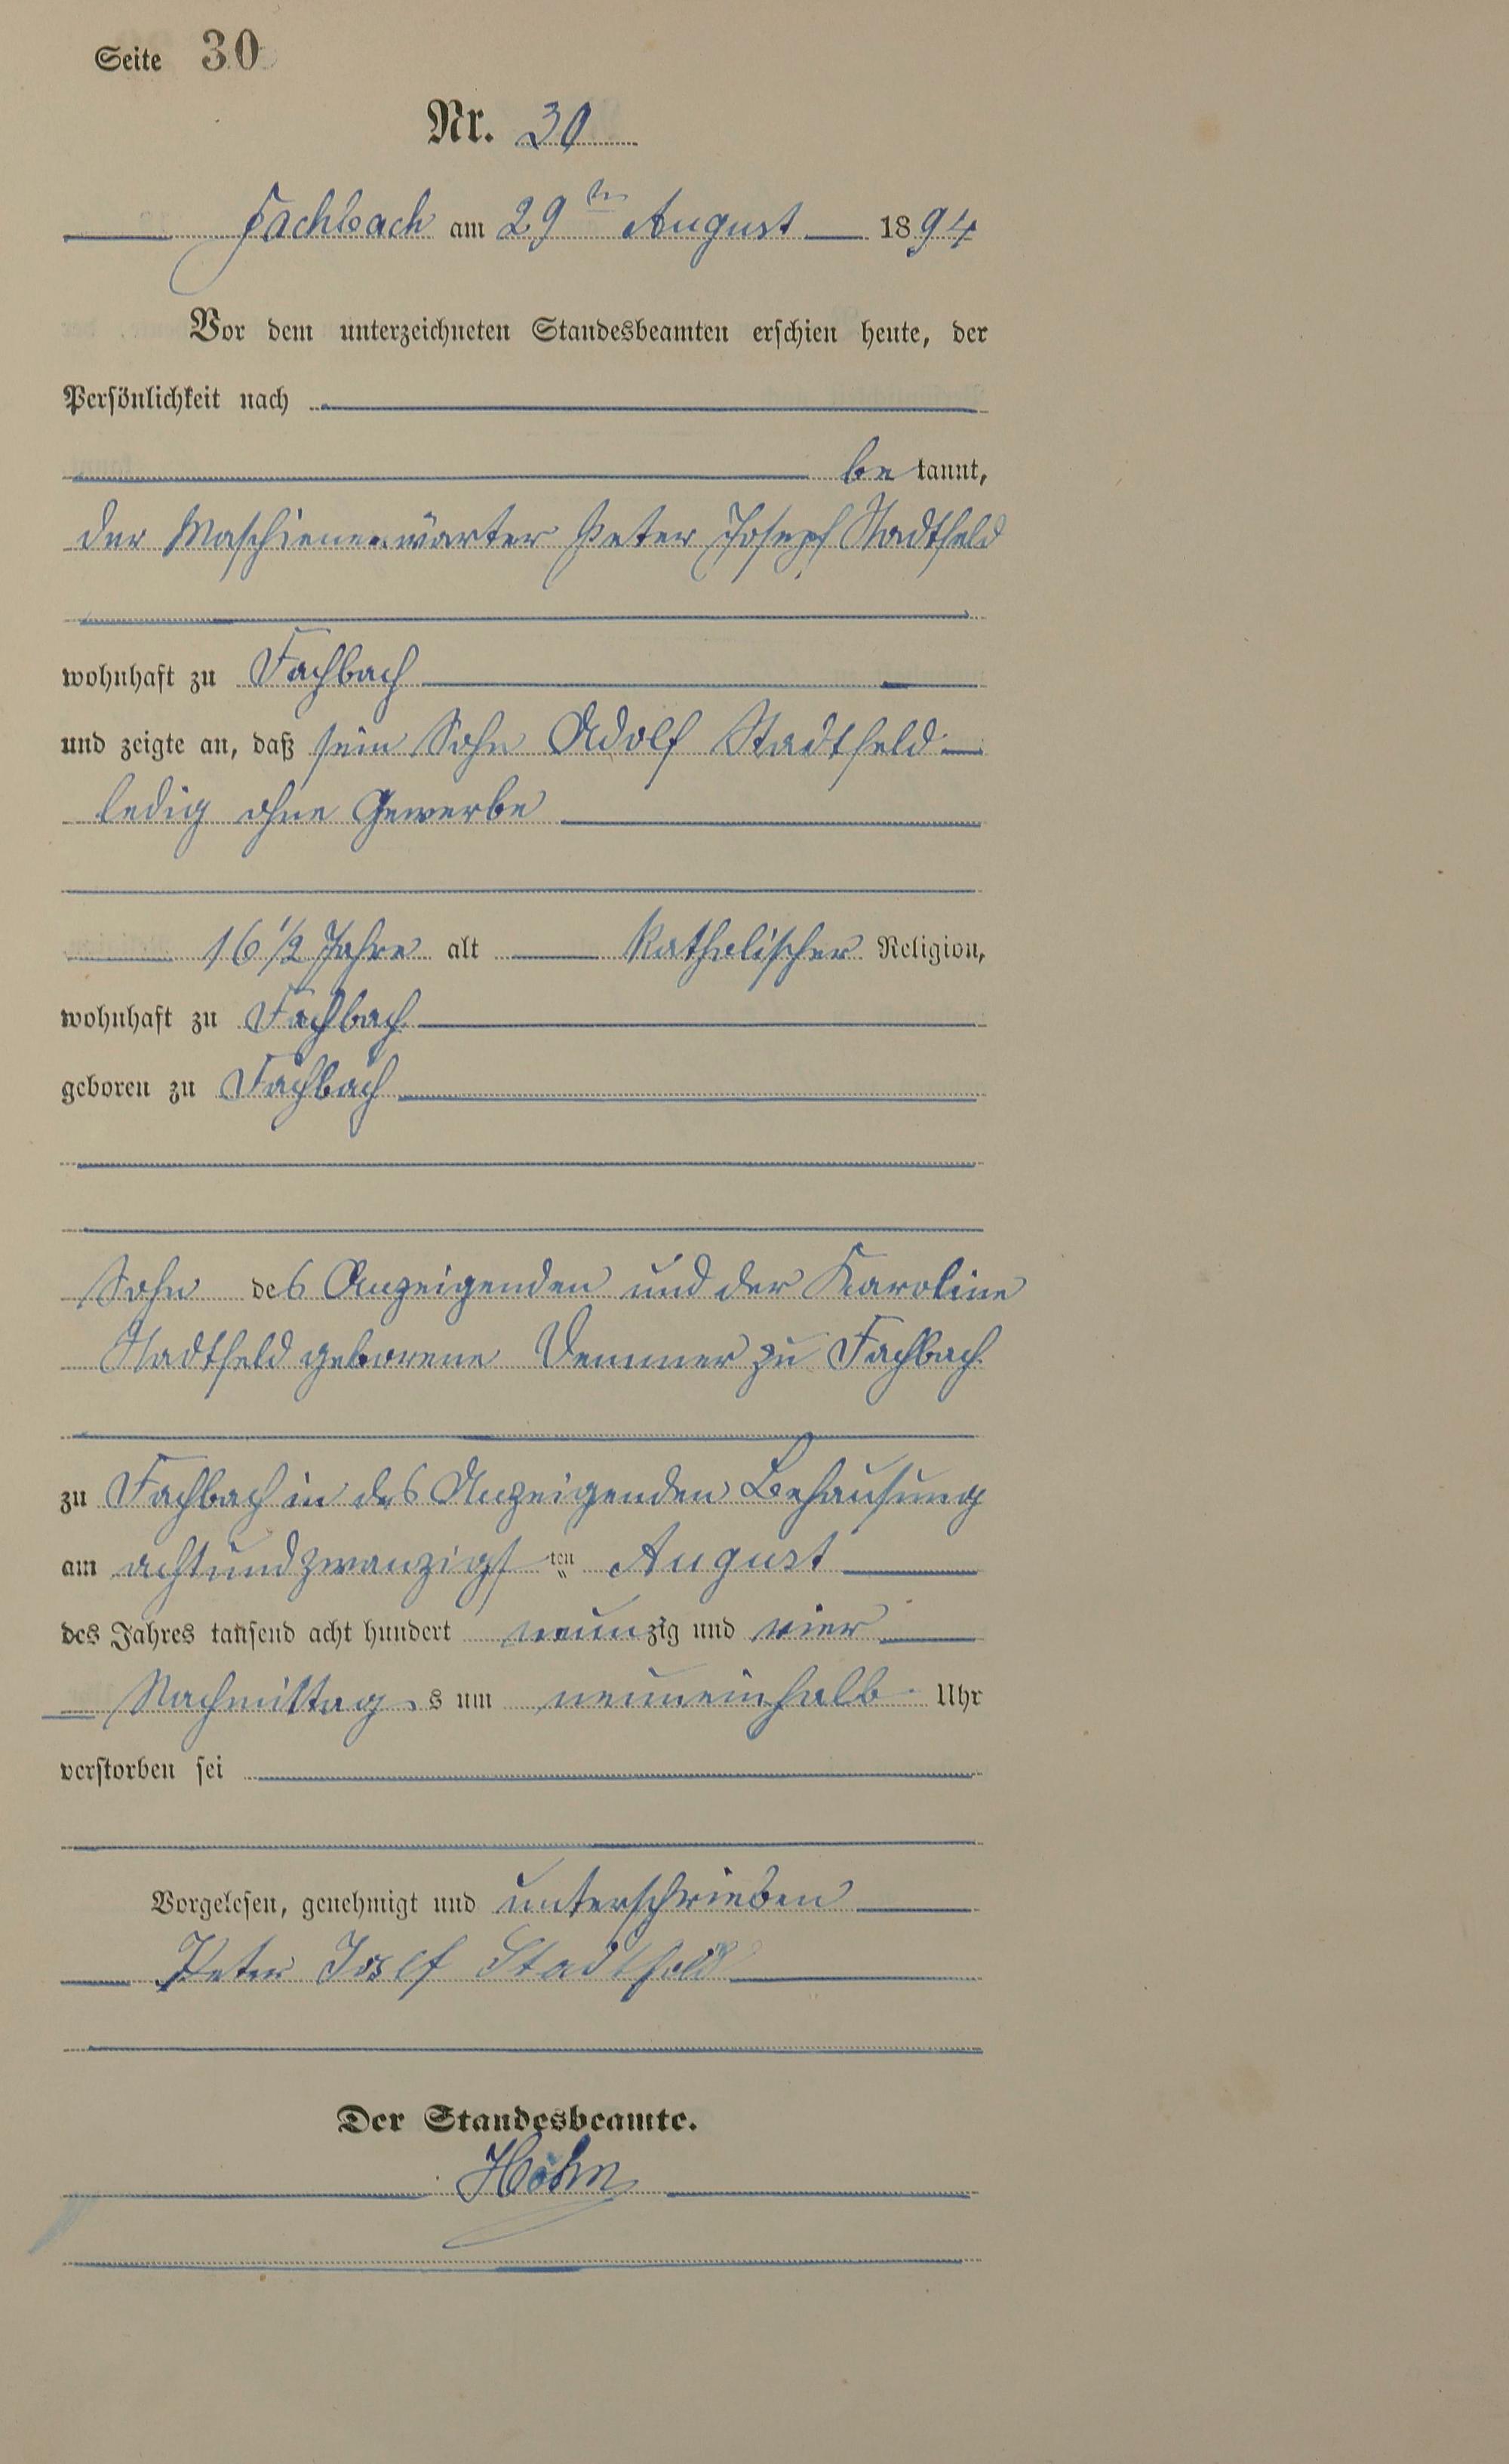 Seite 30
Nr. 30
Fachbach am 29ten August 1894
Vor dem unterzeichneten Standesbeamten erschien heute, der
Persönlichkeit nach
bekannt,
der Maschienenwärter Peter Joseph Stadtfeld
wohnhaft zu Fachbach
und zeigte an, daß sein Sohn Adolf Stadtfeld
ledig ohne Gewerbe
16 1/2 Jahre alt katholischer Religion,
wohnhaft zu Fachbach
geboren zu Fachbach
Sohn des Anzeigenden und der Karoline
Stadtfeld geborene Demmer zu Fachbach
zu Fachbach in des Anzeigenden Behausung
am achtundzwanzigsten August
des Jahres tausend acht hundert neunzig und vier
Nachmittags um neuneinhalb Uhr
verstorben sei
Vorgelesen, genehmigt und unterschrieben
Peter Josef Stadtfeld
Der Standesbeamte.
Höhn